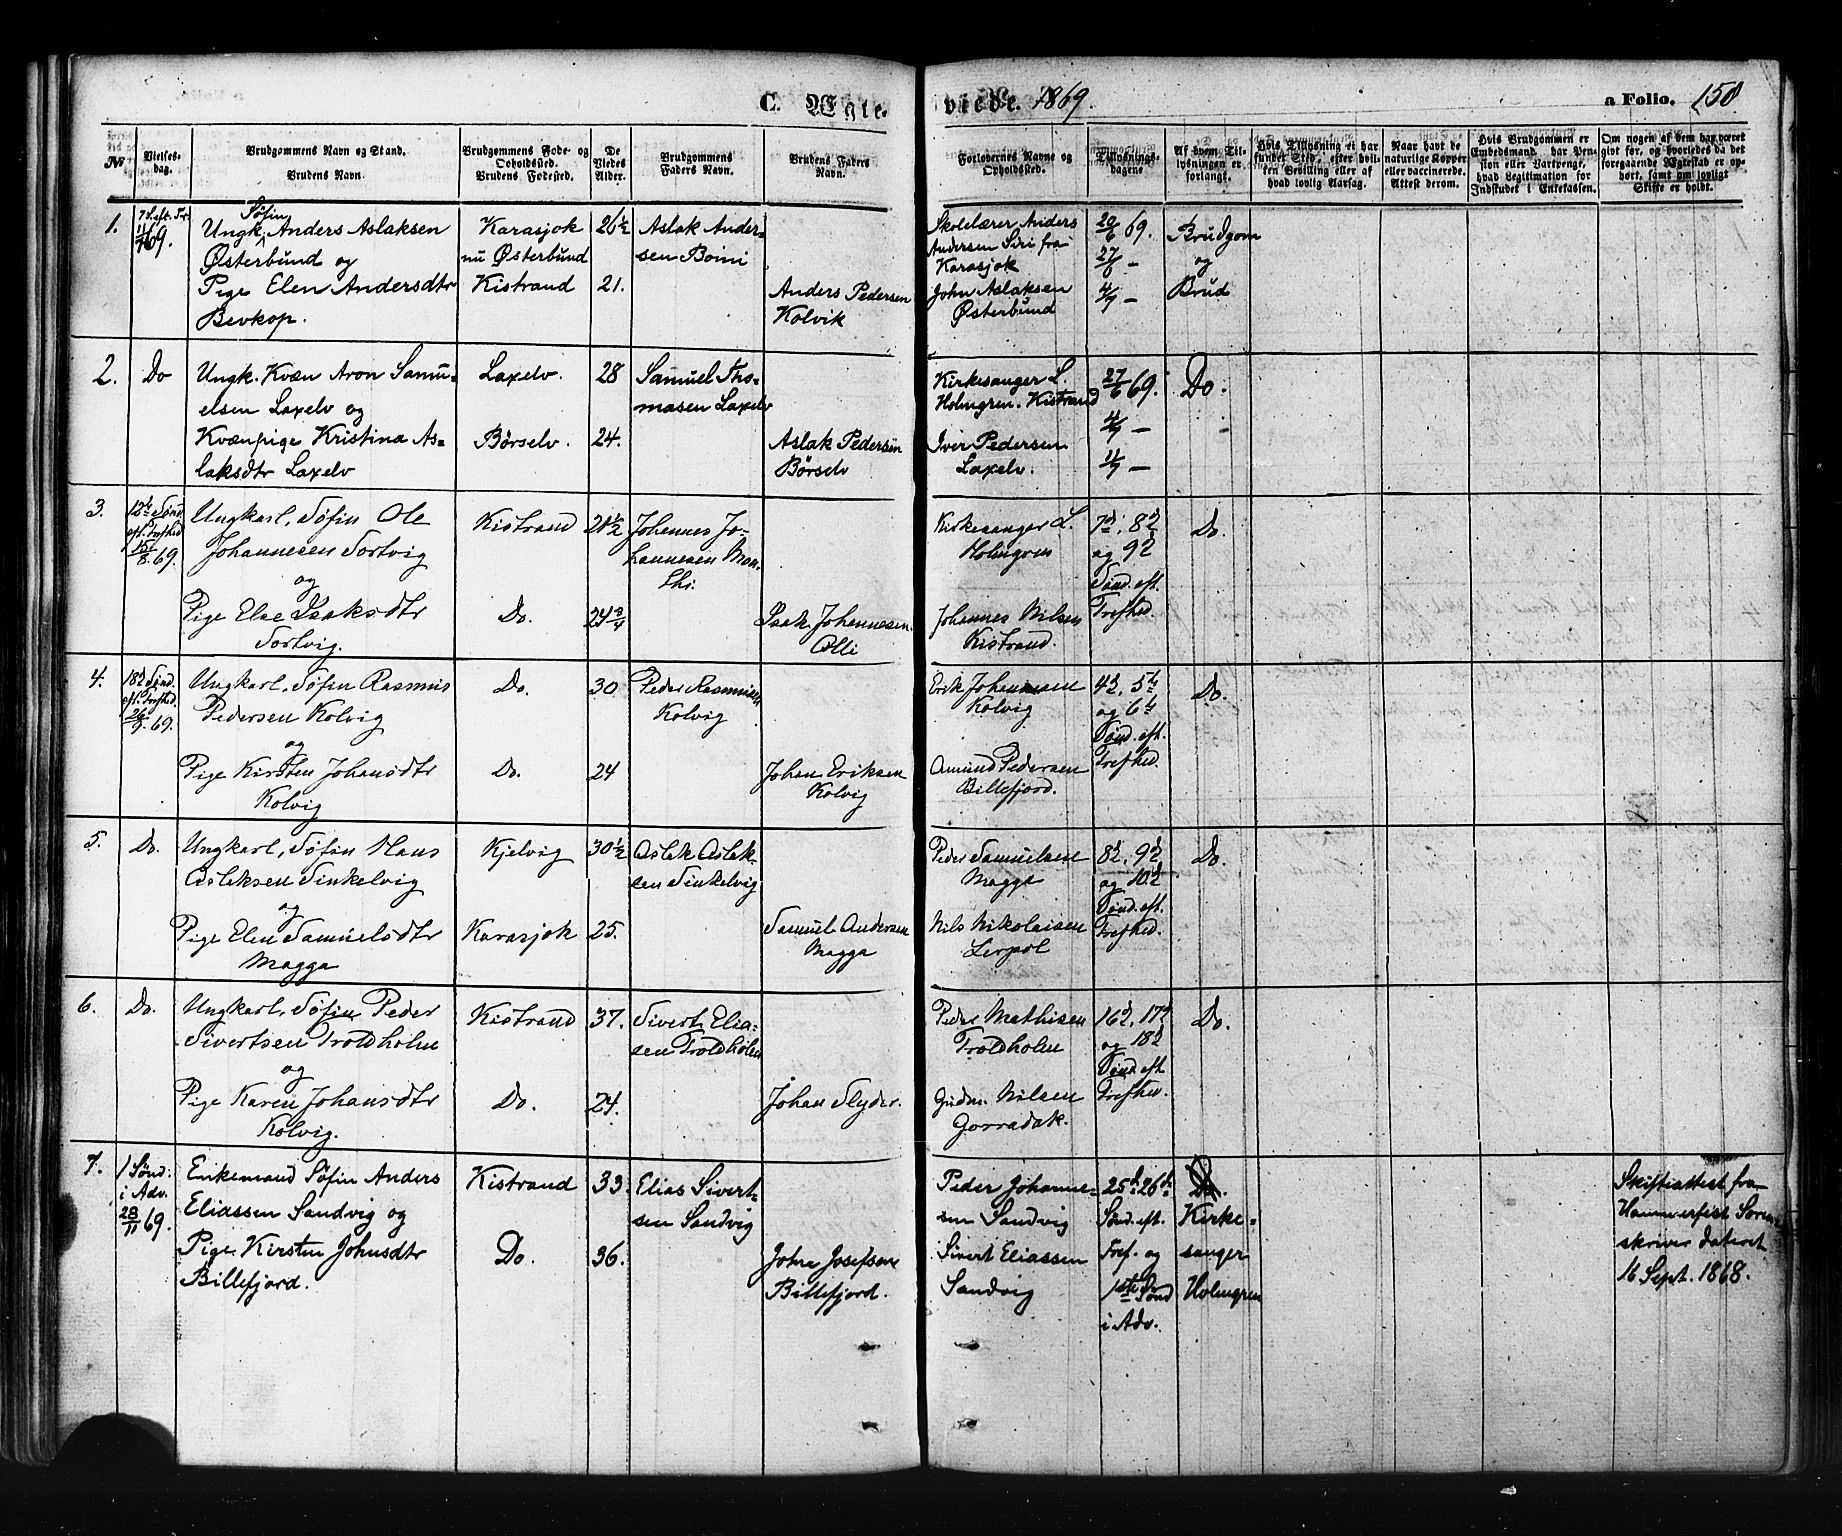 C. Ægte-
viede. 1869.
a Folio. 150
№
Vielses-
dag.
Brudgommens Navn og Stand.
Brudens Navn.
Brudgommens Føde- og
Opholdssted.
Brudens Fødested.
De
Viedes
Alder.
Brudgommens
Faders Navn.
Brudens Faders
Navn.
Forlovernes Navne og
Opholdssted.
Tillysnings-
dagene
Af hvem Til-
lysningen er
forlangt.
Hvis Tillysning ei har
fundet Sted, efter hvil-
ken Bevilling eller af
hvad lovlig Aarsag.
Naar havt de
naturlige Kopper
eller vaccinerede.
Attest derom.
Hvis Brudgommen er
Embedsmand, har Pen-
sion eller Vartpenge,
hvad Legitimation for
Indskudet i Enkekassen.
Om nogen af dem har været
gift før, og hvorledes da det
foregaaende Ægteskab er op-
hørt, samt om lovligt
Skifte er holdt.
1.
7 S. eft. Tr.
11/7 69.
Søfin
Ungk. Anders Aslaksen
Østerbund og
Pige Elen Andersdtr
Bevkop.
Karasjok
nu Østerbund
Kistrand
26½
21.
Aslak Ander-
sen Boini
Anders Pedersen
Kolvik
Skolelærer Anders
Andersen Siri fra
Karasjok
John Aslaksen
Østerbund
20/6 69.
27/6 —
4/7 —
Brudgom
og
Brud
2.
Do
Ungk. Kvæn Aron Samu-
elsen Laxelv og
Kvænpige Kristina As-
laksdtr Laxelv
Laxelv.
Børselv.
28
24.
Samuel Tho-
masen Laxelv
Aslak Pedersen
Børselv
Kirkesanger L.
Holmgren. Kistrand
Iver Pedersen
Laxelv.
27/6 69.
4/7 —
11/7 —
Do.
3.
12te Sønd.
eft. Trefhed
15/8. 69.
Ungkarl, Søfin Ole
Johannesen Sortvig
og
Pige Else Isaksdtr
Sortvig.
Kistrand
Do.
21½
24¾
Johannes Jo-
hannesen
Isak Johannesen
Olli
Kirkesanger L.
Holmgren
Johannes Nilsen
Kistrand.
7d, 8d
og 9d
Sønd. eft.
Trefhed.
Do.
4.
18d Sønd.
eft. Trefhed.
26/9. 69.
Ungkarl, Søfin Rasmus
Pedersen Kolvig
og
Pige Kirsten Johansdtr
Kolvig
Do.
Do.
30
24
Peder Rasmussen
Kolvig
Johan Eriksen
Kolvig
Erik Johannesen
Kolvig
Amund Pedersen
Billefjord.
4d, 5te
og 6te
Sønd. eft.
Trefhed.
Do.
5.
Do.
Ungkarl, Søfin Hans
Aslaksen Sinkelvig
og
Pige Elen Samuelsdtr
Magga
Kjelvig
Karasjok
30½
25.
Aslak Aslak-
sen Sinkelvig
Samuel Andersen
Magga
Peder Samuelsen
Magga
Nils Nikolaisen
Lerpol
8d, 9d
og 10d
Sønd. eft.
Trefhed.
Do.
6.
Do.
Ungkarl, Søfin Peder
Sivertsen Troldholm
og
Pige Karen Johansdtr
Kolvig.
Kistrand
Do.
37.
24.
Sivert Elia-
sen Troldholm
Johan Slyder.
Peder Mathisen
Troldholm
Gudm. Nilsen
Gorradak.
16d, 17d
og 18d
Sønd. eft
Trefhed.
Do.
7.
1 Sønd.
i Adv.
28/11 69.
Enkemand Søfin Anders
Eliassen Sandvig og
Pige Kirsten Johnsdtr
Billefjord.
Kistrand
Do.
33.
36.
Elias Sivert-
sen Sandvig
John Josefsen
Billefjord.
Peder Johanne-
sen Sandvig
Sivert Eliassen
Sandvig
25de 26de
Sønd. eft.
Tref. og
1ste Sønd
i Adv.
Do.
Kirke-
sanger
Holmgren
Skifteattest fra
Hammerfest Soren-
skriver dateret
16 Sept. 1868.